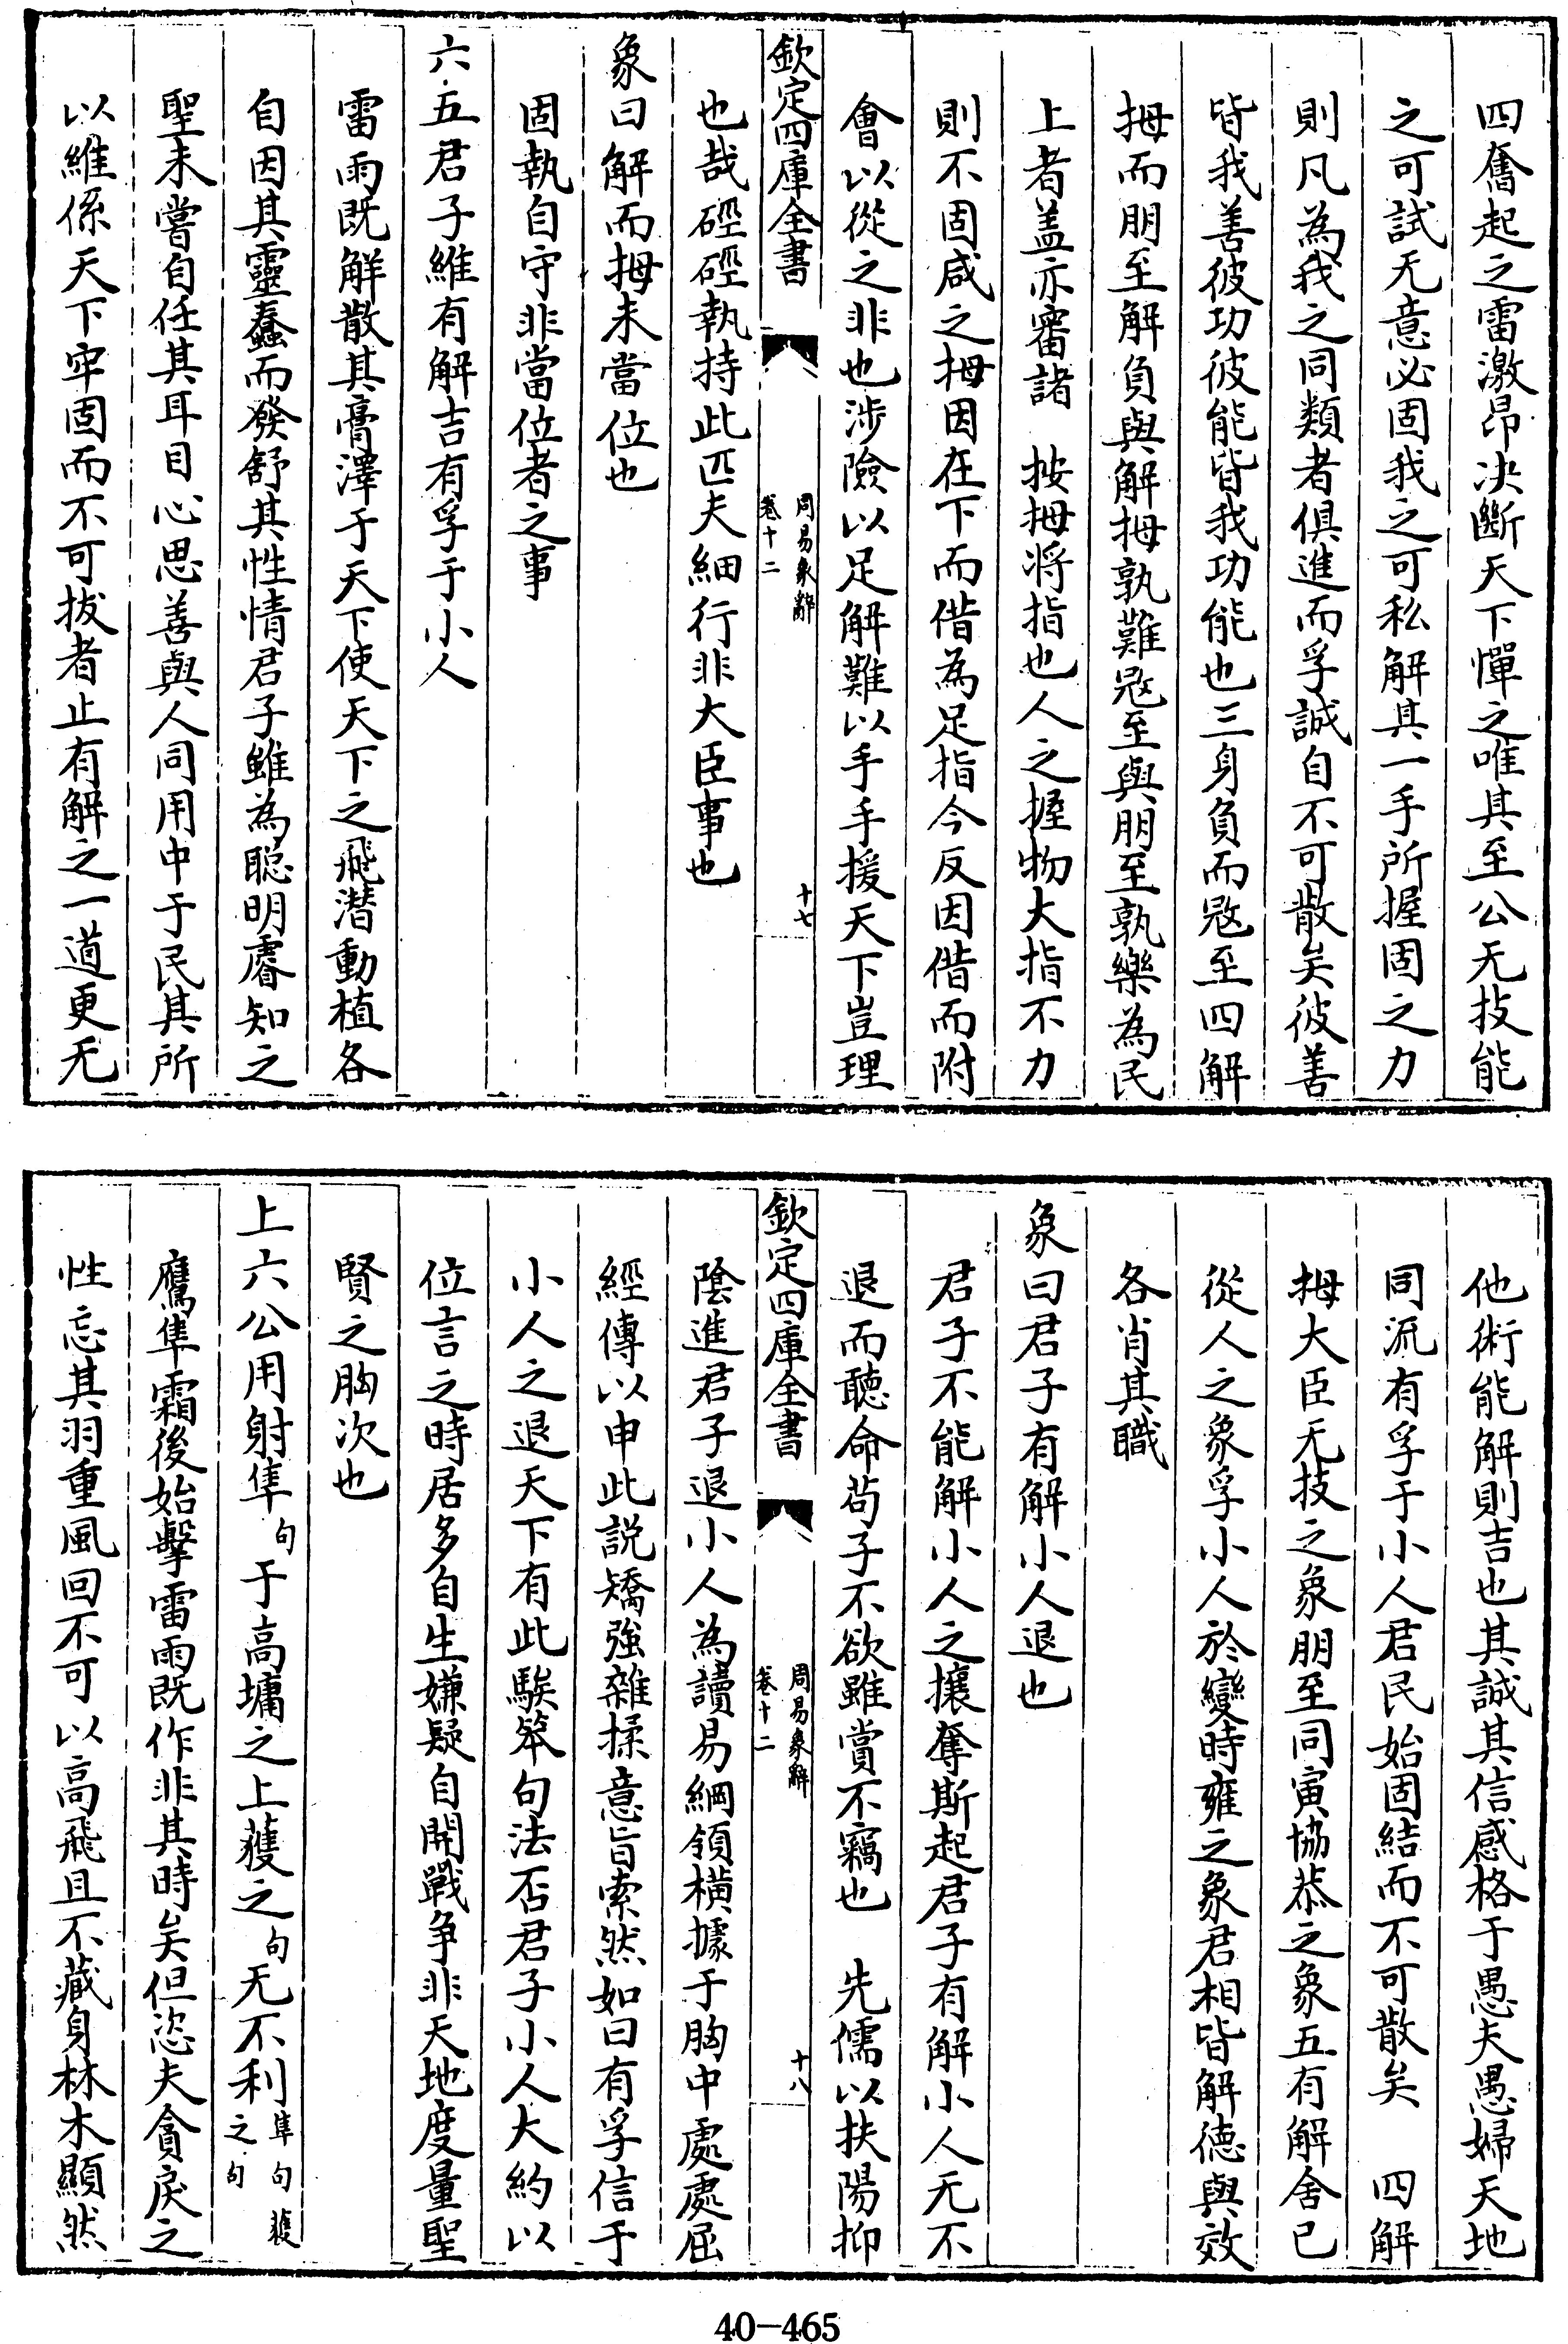 四奮起之雷激昂决斷天下憚之唯其至公无技能
之可試无意必固我之可私解其一手所握固之力
則凡為我之同類者俱進而孚誠自不可散矣彼善
皆我善彼功彼能皆我功能也三身負而㓂至四解
拇而朋至解負與解拇孰難㓂至與朋至孰樂為民
上者盖亦審諸　按拇将指也人之握物大指不力
則不固咸之拇因在下而偕為足指今反因偕而附
會以從之非也涉險以足解難以手手援天下豈理
欽定四庫全書
周易象辭
卷十二
十七
也哉硜硜執持此匹夫細行非大臣事也
象曰解而拇未當位也
固執自守非當位者之事
六五君子維有解吉有孚于小人
雷雨既解散其膏澤于天下使天下之飛潜動植各
自因其靈蠢而發舒其性情君子雖為聪明睿知之
聖未嘗自任其耳目心思善與人同用中于民其所
以維係天下牢固而不可拔者止有解之一道更无
他術能解則吉也其誠其信感格于愚夫愚婦天地
同流有孚于小人君民始固結而不可散矣　四解
拇大臣无技之象朋至同寅協恭之象五有解舍已
從人之象孚小人於變時雍之象君相皆解徳與效
各肖其職
象曰君子有解小人退也
君子不能解小人之攘奪斯起君子有解小人无不
退而聽命苟子不欲雖賞不竊也　先儒以扶陽抑
欽定四庫全書
周易象辭
卷十二
十八
陰進君子退小人為讀易綱領横據于胸中處處屈
經傳以申此説矯強雜揉意旨索然如曰有孚信于
小人之退天下有此騃笨句法否君子小人大約以
位言之時居多自生嫌疑自開戰争非天地度量聖
賢之胸次也
上六公用射隼句于高墉之上䕶之句无不利隼句䕶之句
鷹隼霜後始擊雷雨既作非其時矣但恣夫貪戾之
性忘其羽重風回不可以高飛且不藏身林木顯然
40-465